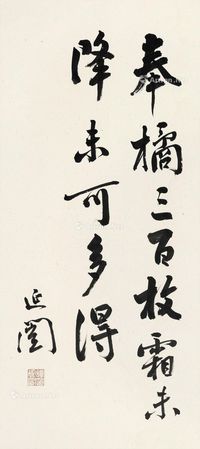 奉橘三百枚霜未
降未可多得
延闓